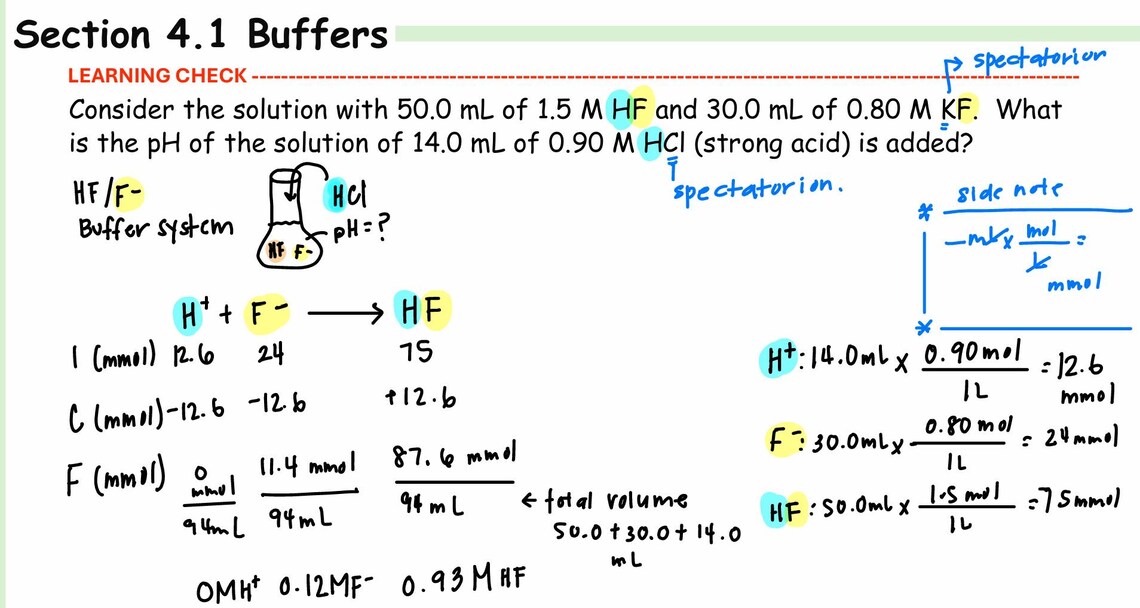 Section 4.1 Buffers
LEARNING CHECK
spectatorion
Consider the solution with 50.0 mL of 1.5 M HF and 30.0 mL of 0.80 M KF. What
is the pH of the solution of 14.0 mL of 0.90 M HCl (strong acid) is added?
spectatorion.
HF/F-
Buffer system
HCl
pH=?
HF F-
* side note
-mL x mol/L =
mmol
*
H+ + F- → HF
I (mmol) 12.6 24 75
C (mmol) -12.6 -12.6 +12.6
F (mmol) 0 mmol/94mL 11.4 mmol/94mL 87.6 mmol/94mL
← total volume
50.0 + 30.0 + 14.0
mL
0MH+ 0.12MF- 0.93M HF
H+: 14.0mL x 0.90mol/1L = 12.6
mmol
F-: 30.0mL x 0.80 mol/1L = 24mmol
HF: 50.0mL x 1.5 mol/1L = 75mmol